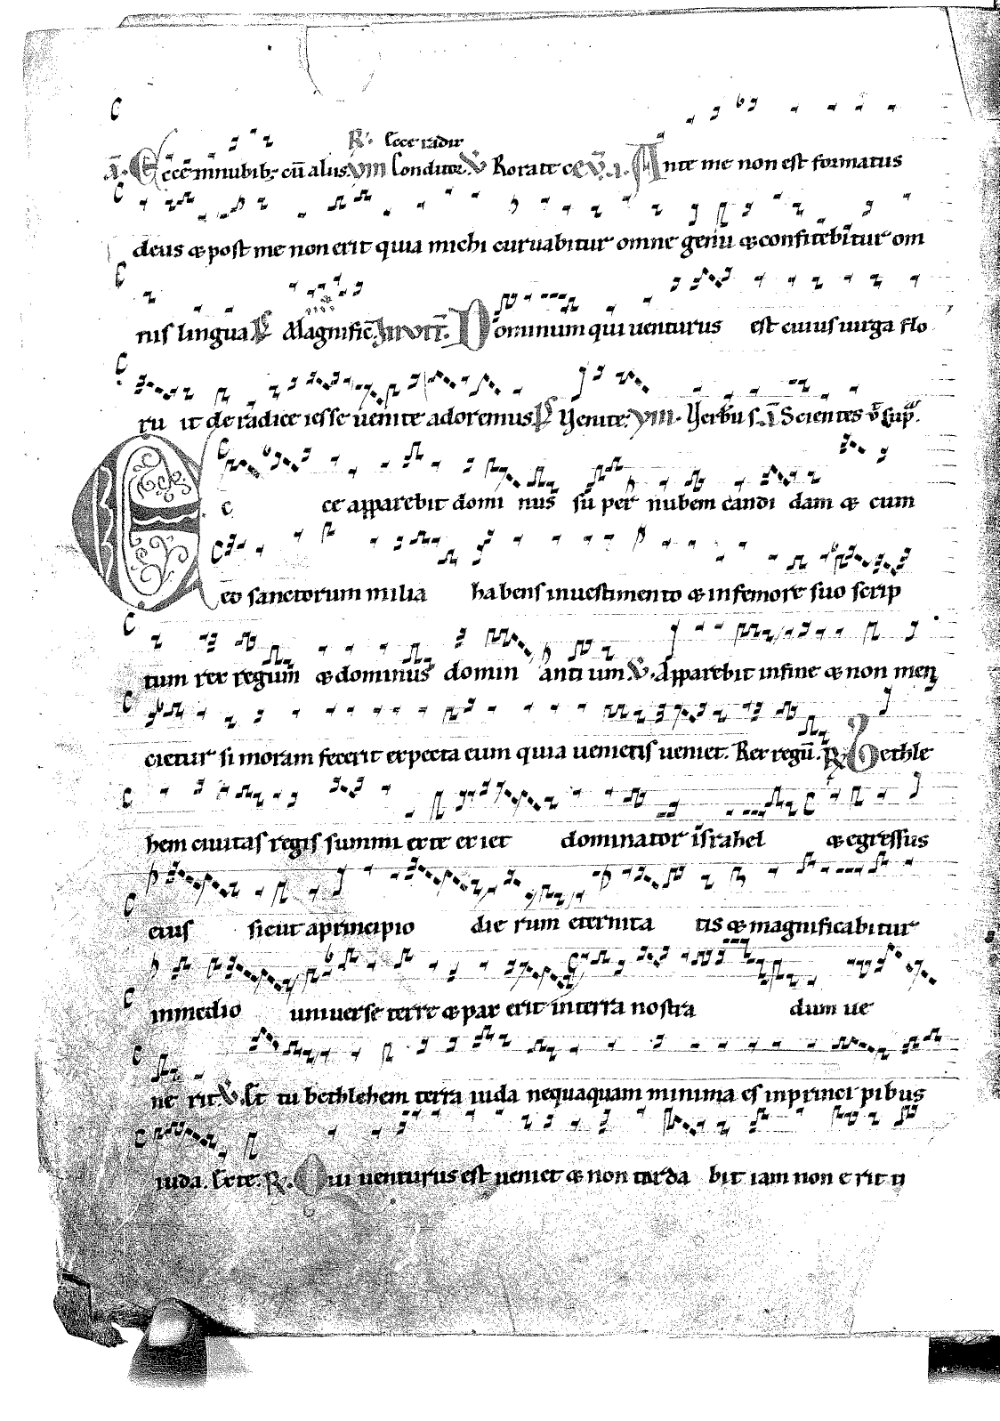 R. Ecce radix
A. Ecce in nubib; cū alus VIII Conditor. V Rorate c. EV. I. Ante me non est formatus
deus & post me non erit quia michi curuabitur omne genu & confitebitur om
nis lingua. P Magnific. INVIT. Dominum qui uenturus est cuius uirga flo
ru it de radice iesse uenite adoremus P Venite. VIII. Scientes sup.
Ecce apparebit domi nus su per nubem candi dam & cum
eo sanctorum milia habens in uestimento & in femore suo scrip
tum rex regum & dominus domin anti um V. Apparebit in fine & non men
cietur si moram fecerit expecta eum quia ueniens ueniet. Rex regū. R Bethle
hem ciuitas regis summi ex te ex iet dominator israhel & egressus
eius sicut a principio die rum eternita tis & magnificabitur
in medio uniuerse terre & pax erit in terra nostra dum ue
ne rit V. Et tu bethlehem terra iuda nequaquam minima es in princi pibus
iuda. Ex te. R. Qui uenturus est ueniet & non tarda bit iam non e rit ti